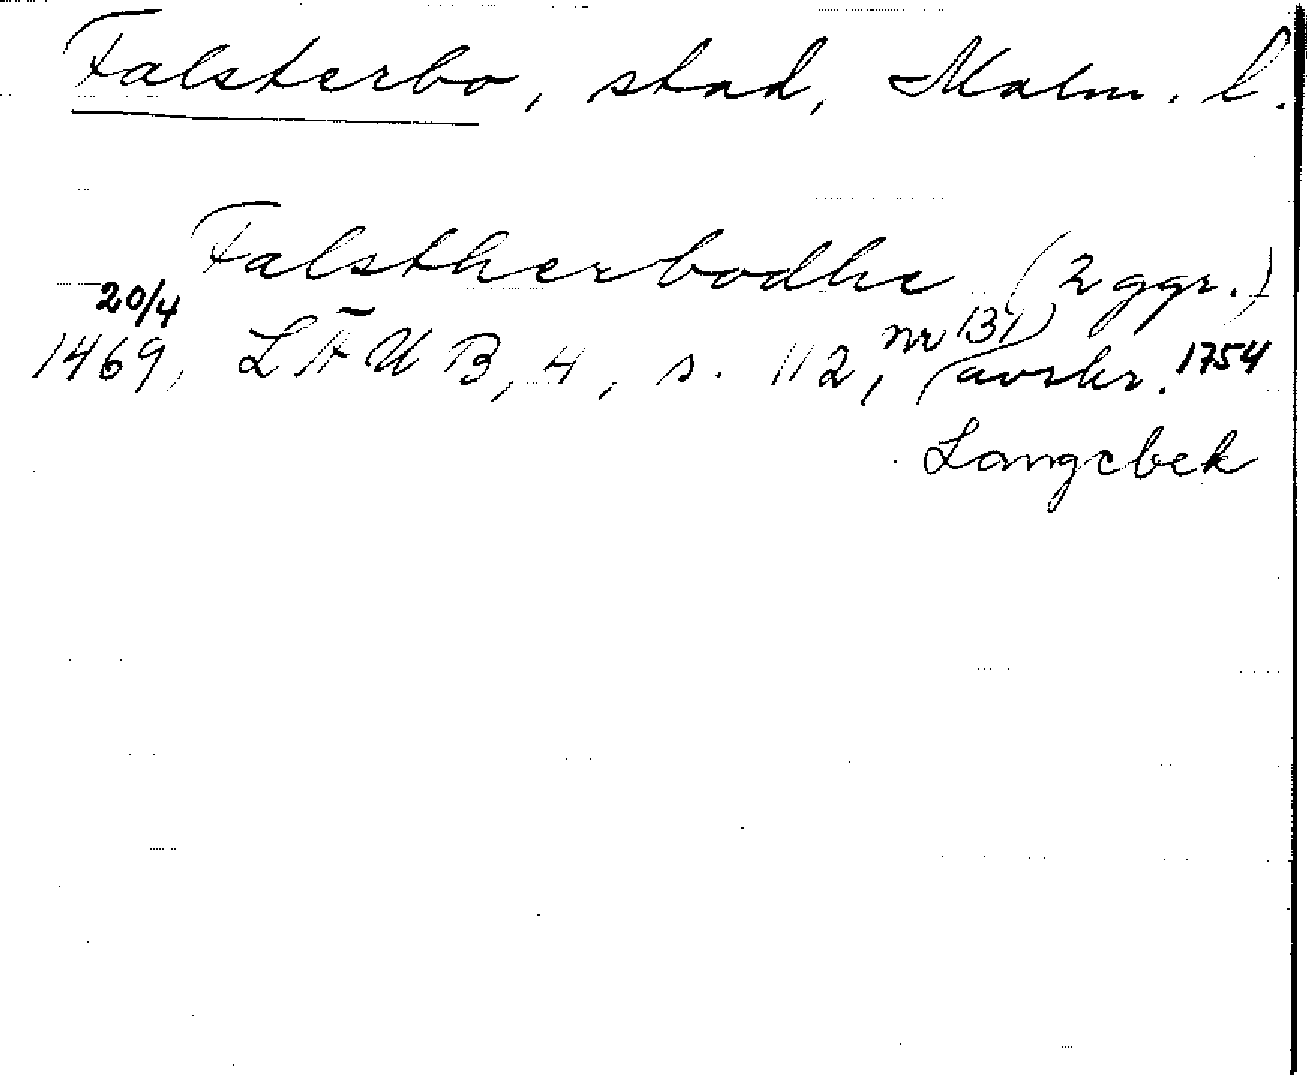 Falsterbo, stad, Malm. l.
Falstherbodhe (2 ggr.)
20/4
1469, LÄUB, 4, s. 112, nr 131) (avskr. 1754
Langebek